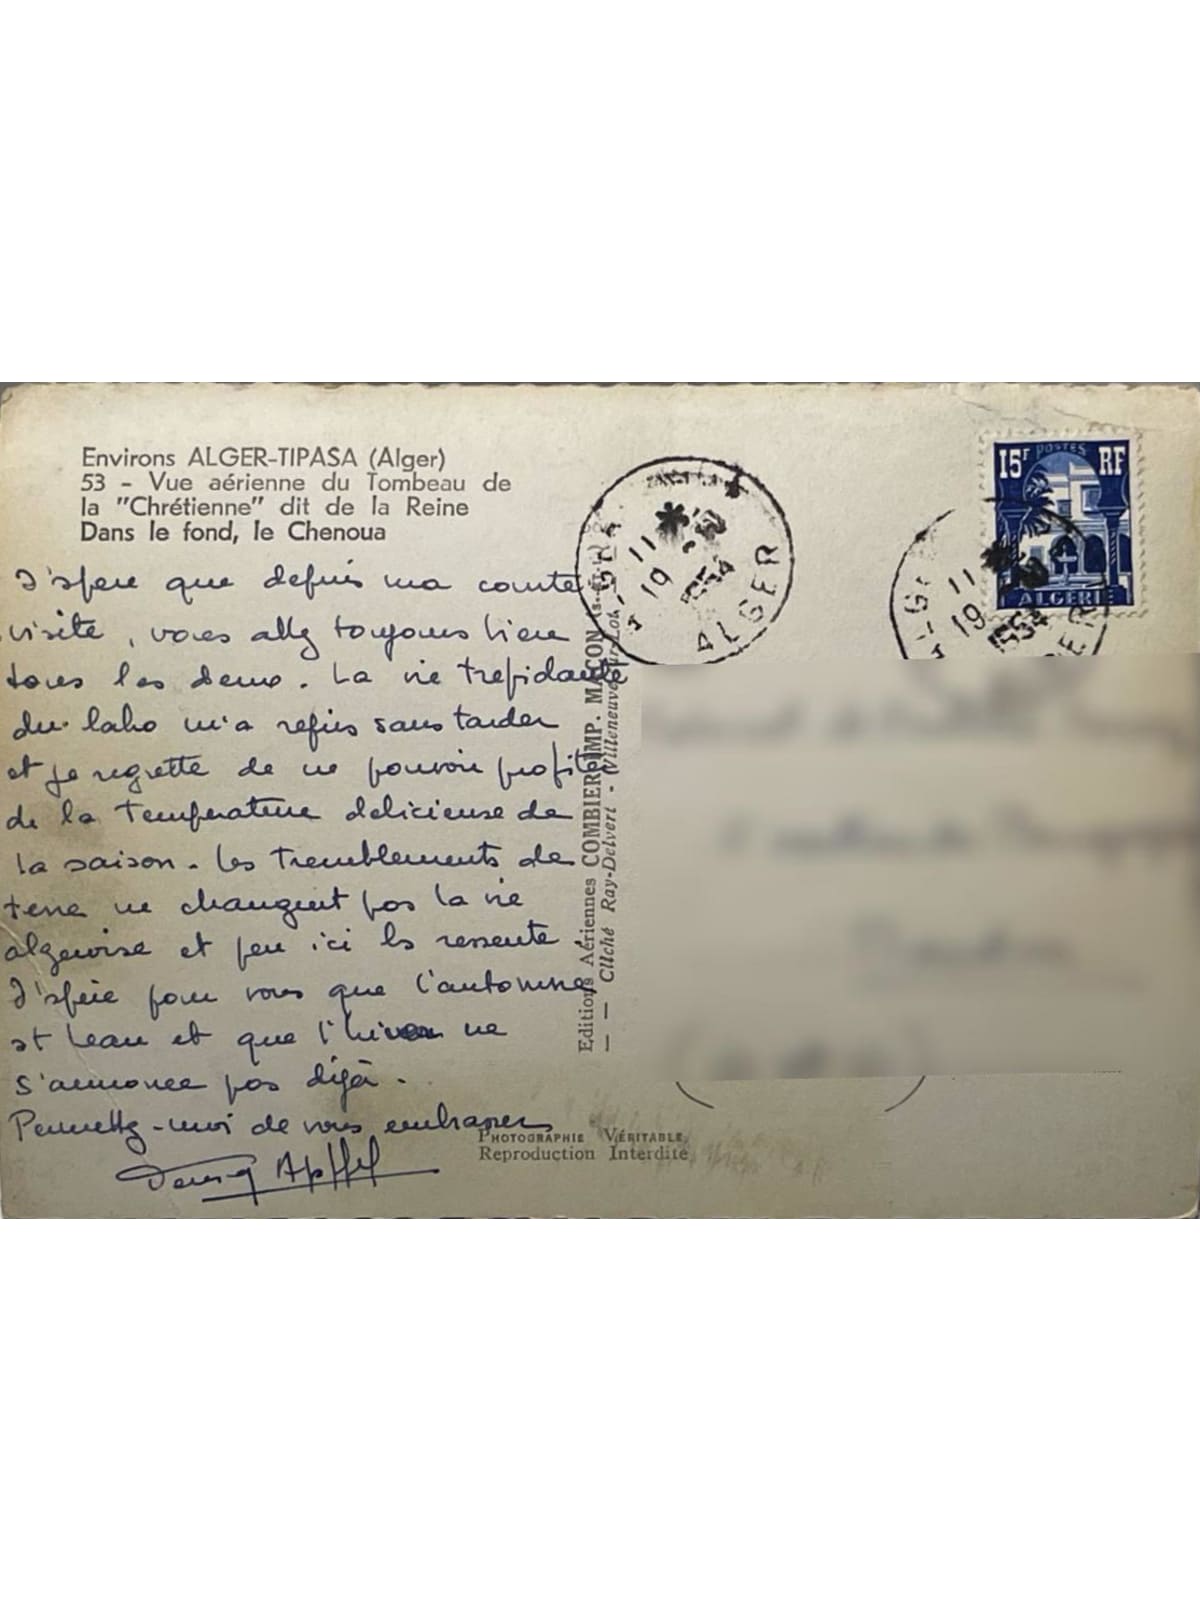 Environs ALGER-TIPASA (Alger)
53 - Vue aérienne du Tombeau de
la "Chrétienne" dit de la Reine
Dans le fond, le Chenoua
J'espère que depuis ma courte
visite, vous allez toujours bien
tous les deux. La vie trepidante
du labo m'a repris sans tarder
et je regrette de ne pouvoir profiter
de la température délicieuse de
la saison. Les tremblements de
terre ne changent pas la vie
algéroise et peu ici les ressente.
J'espère pour vous que l'automne
est beau et que l'hiver ne
s'annonce pas déjà.
Permettez-moi de vous embrasser
Apffel
Editions Aériennes COMBIER IMP. MACON
— — Cliché Ray-Delvert - Villeneuve-sur-Lot
PHOTOGRAPHIE VÉRITABLE
Reproduction Interdite
ALGER
11
19
1954
15F POSTES RF
ALGERIE
11
19
1954